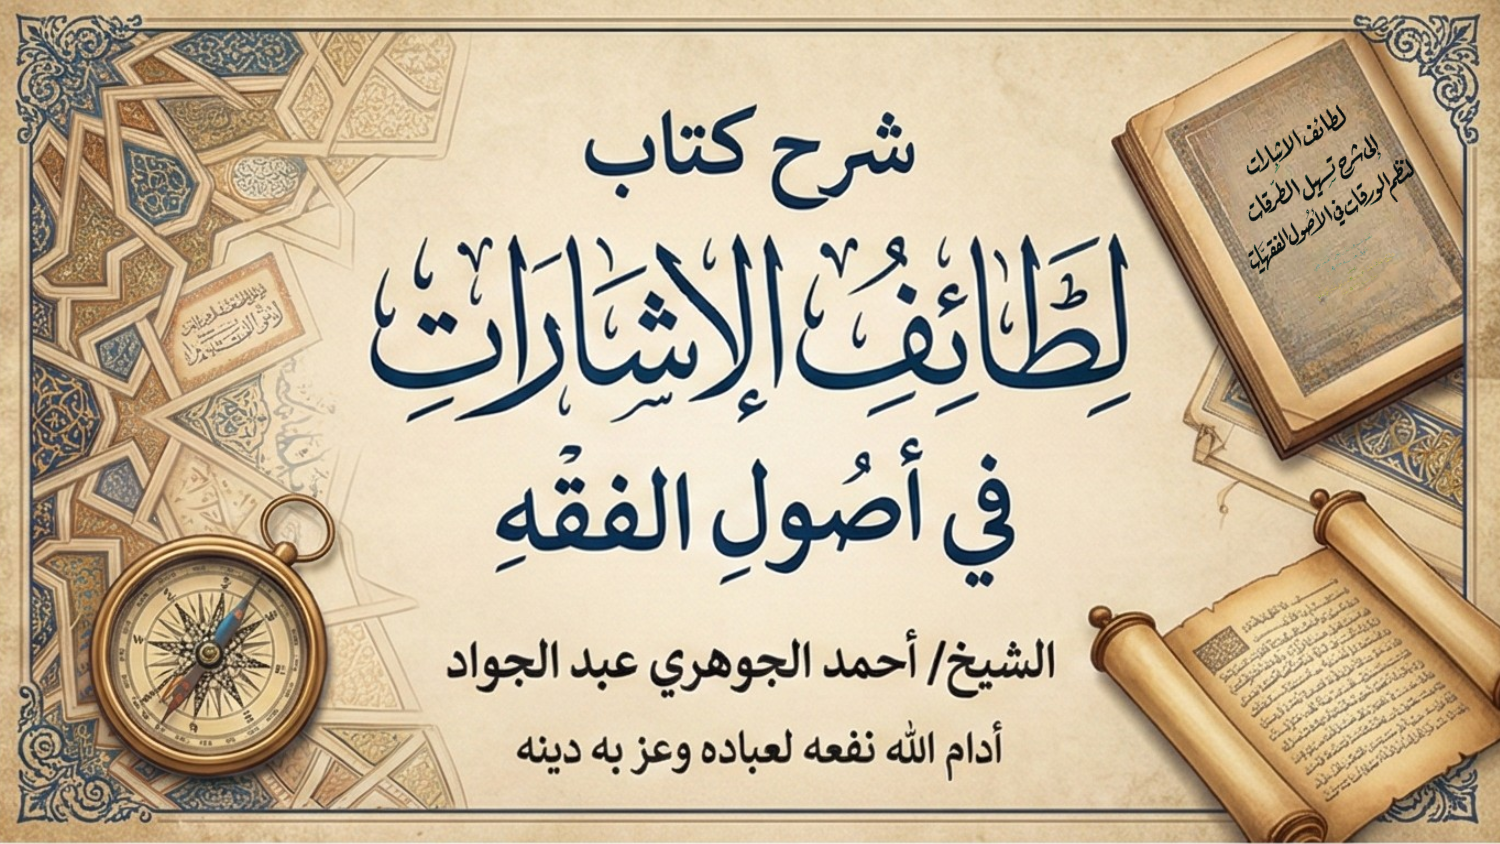 شرح كتاب
لَطَائِفُ الإشَارَاتِ
في أصُولِ الفقْهِ
الشيخ/ أحمد الجوهري عبد الجواد
أدام الله نفعه لعباده وعز به دينه
لطائف الاشارات
إلى شرح تسهيل الطرقات
لنظم الورقات في الأصول الفقهيات